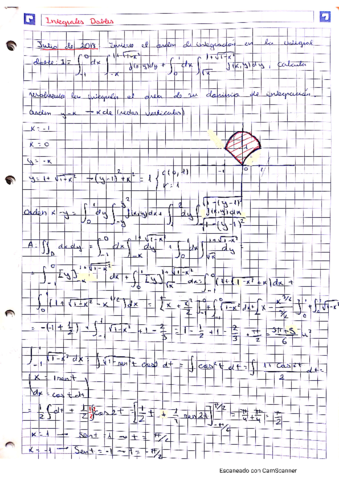 Integrales Dobles
Julio de 2013. Invierte el orden de integración en la integral
doble I = ∫_{-1}^{0} dx ∫_{-x}^{1+√1-x²} f(x,y)dy + ∫_{0}^{1} dx ∫_{√x}^{1+√1-x²} f(x,y)dy, calcula
la integral el área de su dominio de integración
Orden y-x → x de (redes verticales)
x = -1
x = 0
y = -x
y = 1+√1-x² → (y-1)²+x² = 1 { C(0,1) r=1
-1 0 1
Orden x-y =
A = ∬_D dxdy = ∫_{-1}^{0} dx ∫_{-x}^{1+√1-x²} dy + ∫_{0}^{1} dx ∫_{√x}^{1+√1-x²} dy =
= ∫_{-1}^{0} [y]_{-x}^{1+√1-x²} dx + ∫_{0}^{1} [y]_{√x}^{1+√1-x²} dx = ∫_{-1}^{0} (1+√1-x²+x)dx +
∫_{0}^{1} (1+√1-x²-x^{1/2})dx =
= -(-1+1/2) + ∫_{-1}^{1} √1-x² + 1 - 2/3 = 1 - 1/2 + 1 - 2/3 + π/2 = (3π+5)/6 u²
∫_{-1}^{1} √1-x² dx = ∫ √1-sen²t cost dt = ∫ cos²t dt = ∫ (1+cos2t)/2 dt =
{ x = 1 sent
dx = cost dt }
= 1/2 ∫ dt + 1/2 ∫ cos2t = [1/2 t + 1/4 sen2t]_{-π/2}^{π/2} = π/4 + π/4 = π/2
x = 1 → sent = 1 → t = π/2
x = -1 → sent = -1 → t = -π/2
Escaneado con CamScanner